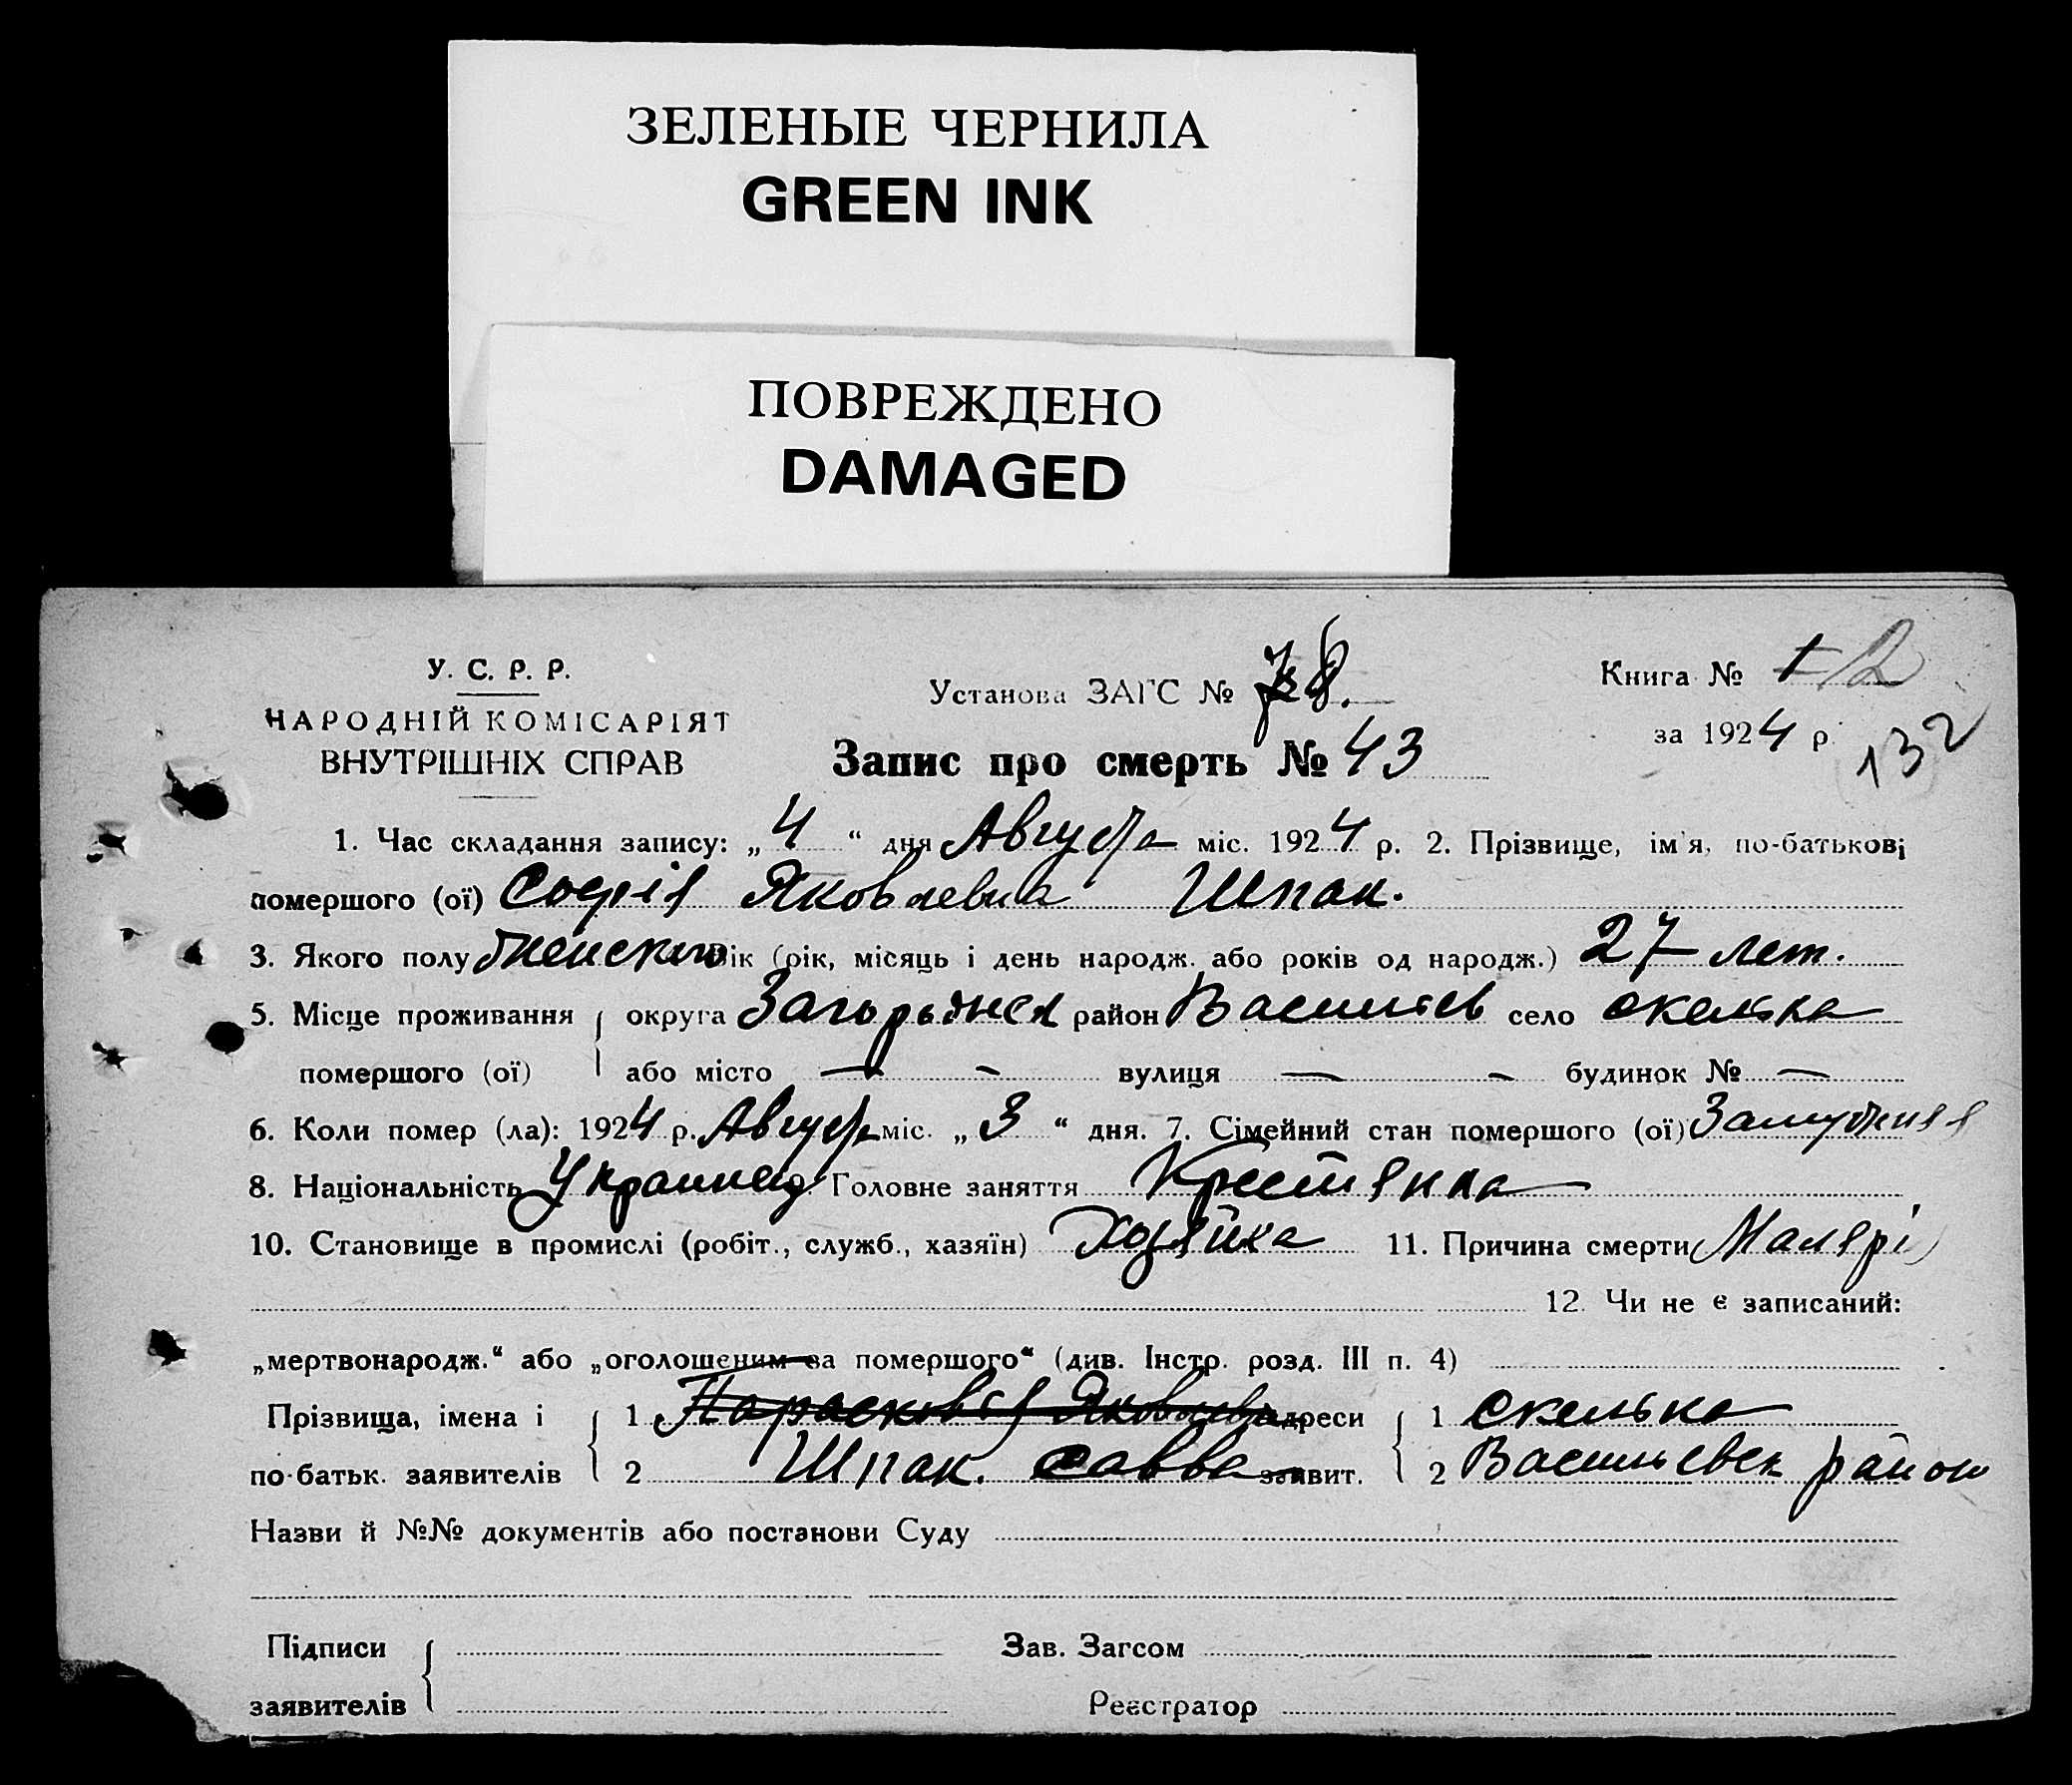 ЗЕЛЕНЫЕ ЧЕРНИЛА
GREEN INK
ПОВРЕЖДЕНО
DAMAGED
У. С. Р. Р.
НАРОДНІЙ КОМІСАРІЯТ
ВНУТРІШНІХ СПРАВ
Установа ЗАГС № 8.
Книга № 1 2
за 1924 р.
132
Запис про смерть № 43
1. Час складання запису: „4“ дня Августа міс. 1924 р. 2. Прізвище, ім'я, по-батькові
помершого (ої) Софія Яковлевна Шпак.
3. Якого полу женского Вік (рік, місяць і день народж. або років од народж.) 27 лет.
5. Місце проживання округа район Васильев село скелька
помершого (ої) або місто — - вулиця — - будинок № —
6. Коли помер (ла): 1924 р. Августа міс. „3“ дня. 7. Сімейний стан помершого (ої) Замужняя
8. Національність 9. Головне заняття Крестянка
10. Становище в промислі (робіт., служб., хазяїн) Хозяйка 11. Причина смерти Малярі
12. Чи не є записаний:
„мертвонародж.“ або „оголошеним за помершого“ (див. Інстр. розд. III п. 4)
Прізвища, імена і 1 Парасковія Яковлевна адреси 1 скелька
по-батьк. заявителів 2 Шпак. савва заявит. 2 Васильевск район
Назви й №№ документів або постанови Суду
Підписи Зав. Загсом
заявителів Реєстратор